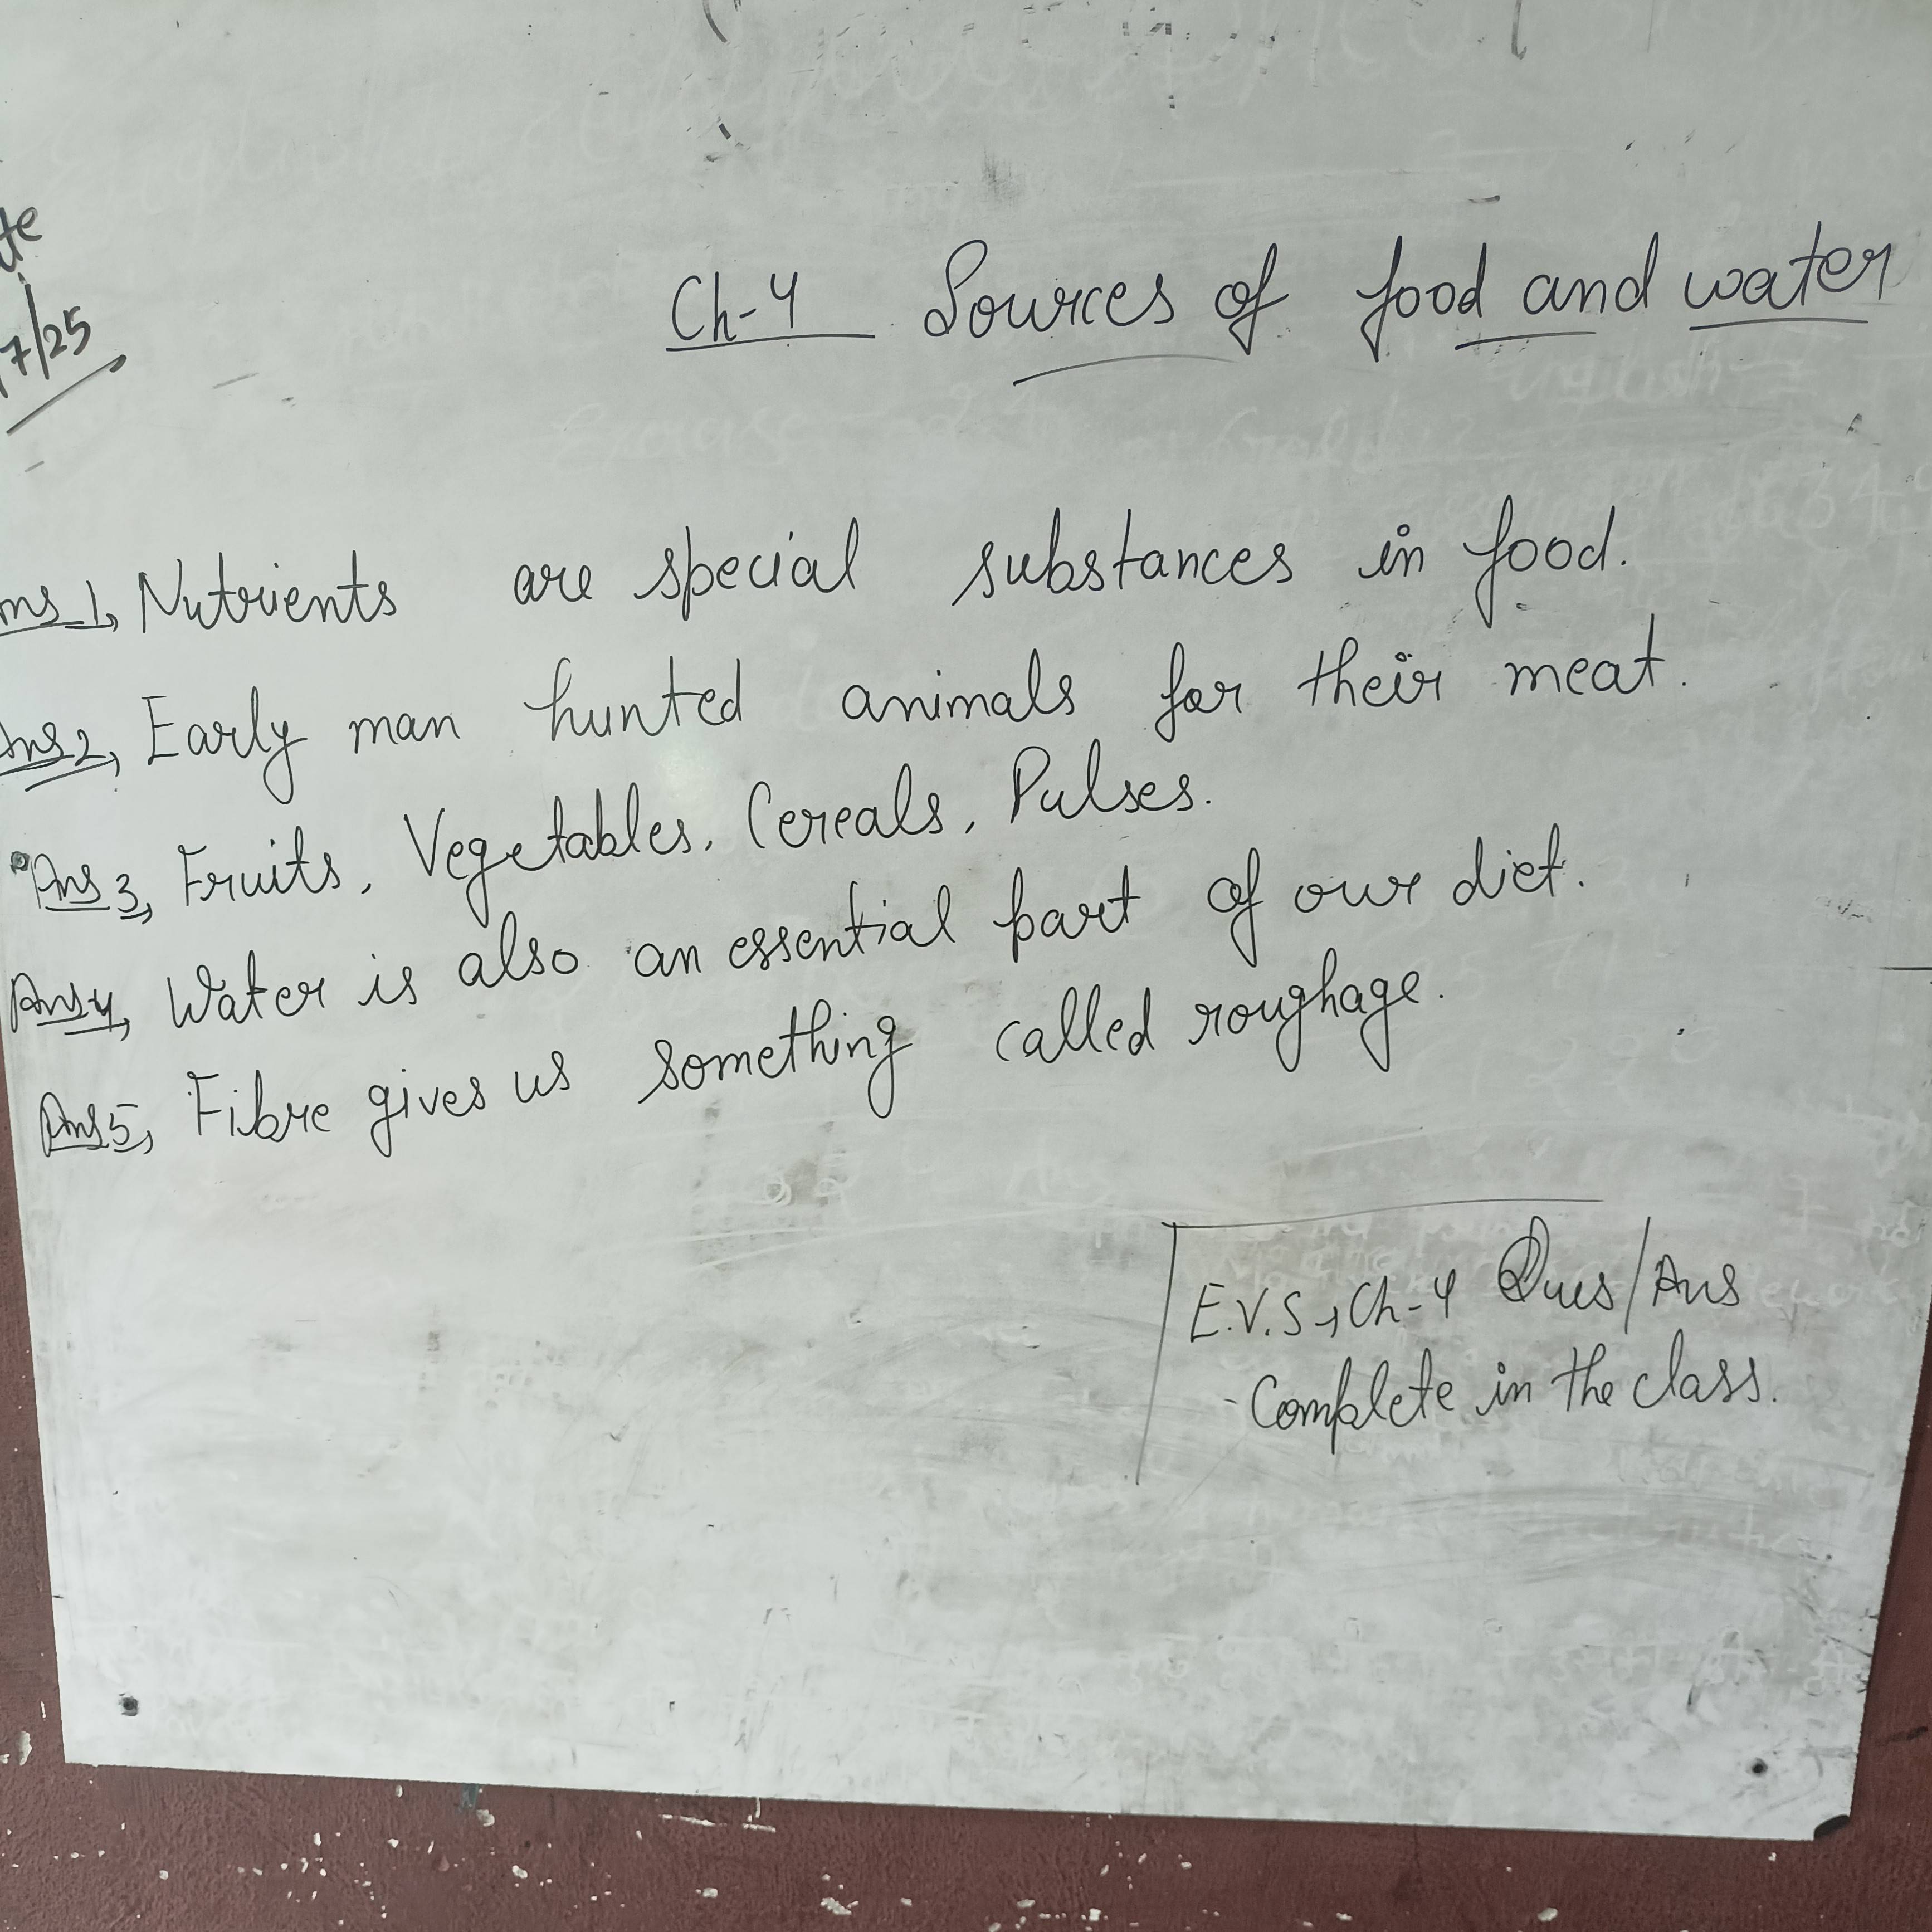 7/25
Ch-4 Sources of food and water
Ans 1, Nutrients are special substances in food.
Ans 2, Early man hunted animals for their meat.
Ans 3, Fruits, Vegetables, Cereals, Pulses.
Ans 4, Water is also an essential part of our diet.
Ans 5, Fibre gives us something called roughage.
E.V.S, Ch-4 Ques/Ans
Complete in the class.